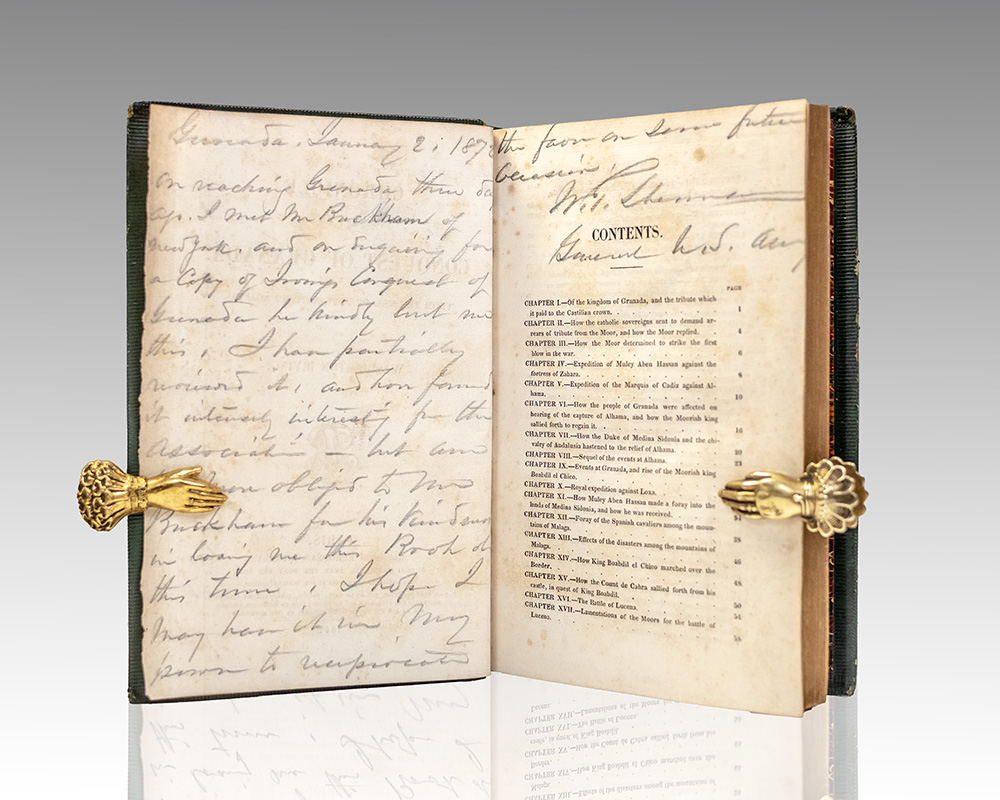 Grenada, January 2; 1872
on reaching Grenada three da
ago. I met Mr Buckham of
New York. and on enquiring for
a Copy of Irving's Conquest of
Grenada he kindly lent me
this. I have partially
reviewed it, and have found
it intensely interest for the
Associati - but am
more obliged to Mr
Buckham for his kindness
in loaning me this Book
this time. I hope I
may have it in my
power to reciprocate
the favor on some future
occasion
W.T. Sherman
General U.S. Army
CONTENTS.
PAGE
CHAPTER I.—Of the kingdom of Granada, and the tribute which
it paid to the Castilian crown. . . 1
CHAPTER II.—How the catholic sovereigns sent to demand ar-
rears of tribute from the Moor, and how the Moor replied. . 4
CHAPTER III.—How the Moor determined to strike the first
blow in the war. . . . 6
CHAPTER IV.—Expedition of Muley Aben Hassan against the
fortress of Zahara. . . . 8
CHAPTER V.—Expedition of the Marquis of Cadiz against Al-
hama. . . . 10
CHAPTER VI.—How the people of Granada were affected on
hearing of the capture of Alhama, and how the Moorish king
sallied forth to regain it. . . . 16
CHAPTER VII.—How the Duke of Medina Sidonia and the chi-
valry of Andalusia hastened to the relief of Alhama. . 20
CHAPTER VIII.—Sequel of the events at Alhama. . . 23
CHAPTER IX.—Events at Granada, and rise of the Moorish king
Boabdil el Chico. . . .
CHAPTER X.—Royal expedition against Loxa. . .
CHAPTER XI.—How Muley Aben Hassan made a foray into the
lands of Medina Sidonia, and how he was received. . 34
CHAPTER XII.—Foray of the Spanish cavaliers among the moun-
tains of Malaga. . . . 38
CHAPTER XIII.—Effects of the disasters among the mountains of
Malaga. . . . 46
CHAPTER XIV.—How King Boabdil el Chico marched over the
Border. . . . 48
CHAPTER XV.—How the Count de Cabra sallied forth from his
castle, in quest of King Boabdil. . . 50
CHAPTER XVI.—The Battle of Lucena. . . 54
CHAPTER XVII.—Lamentations of the Moors for the battle of
Lucena. . . . 58